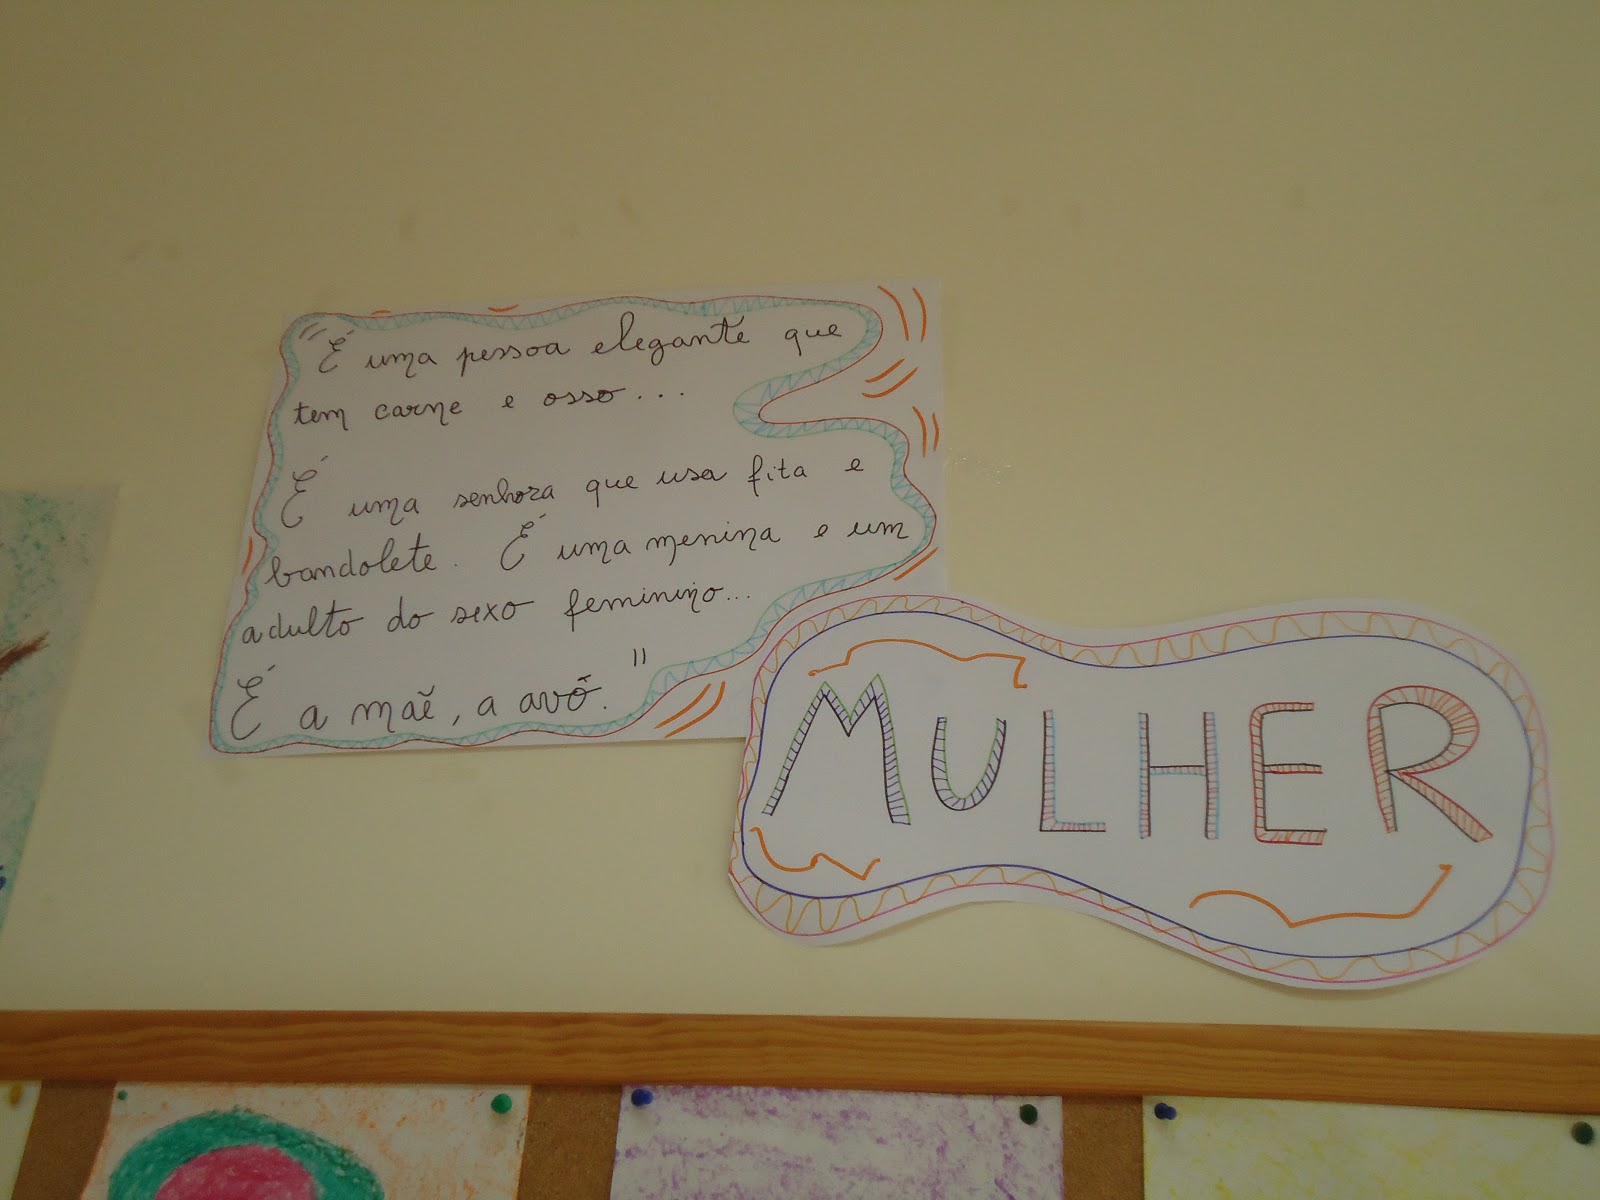 "É uma pessoa elegante que
tem carne e osso...
É uma senhora que usa fita e
bandolete. É uma menina e um
adulto do sexo feminino...
É a mãe, a avó."
MULHER